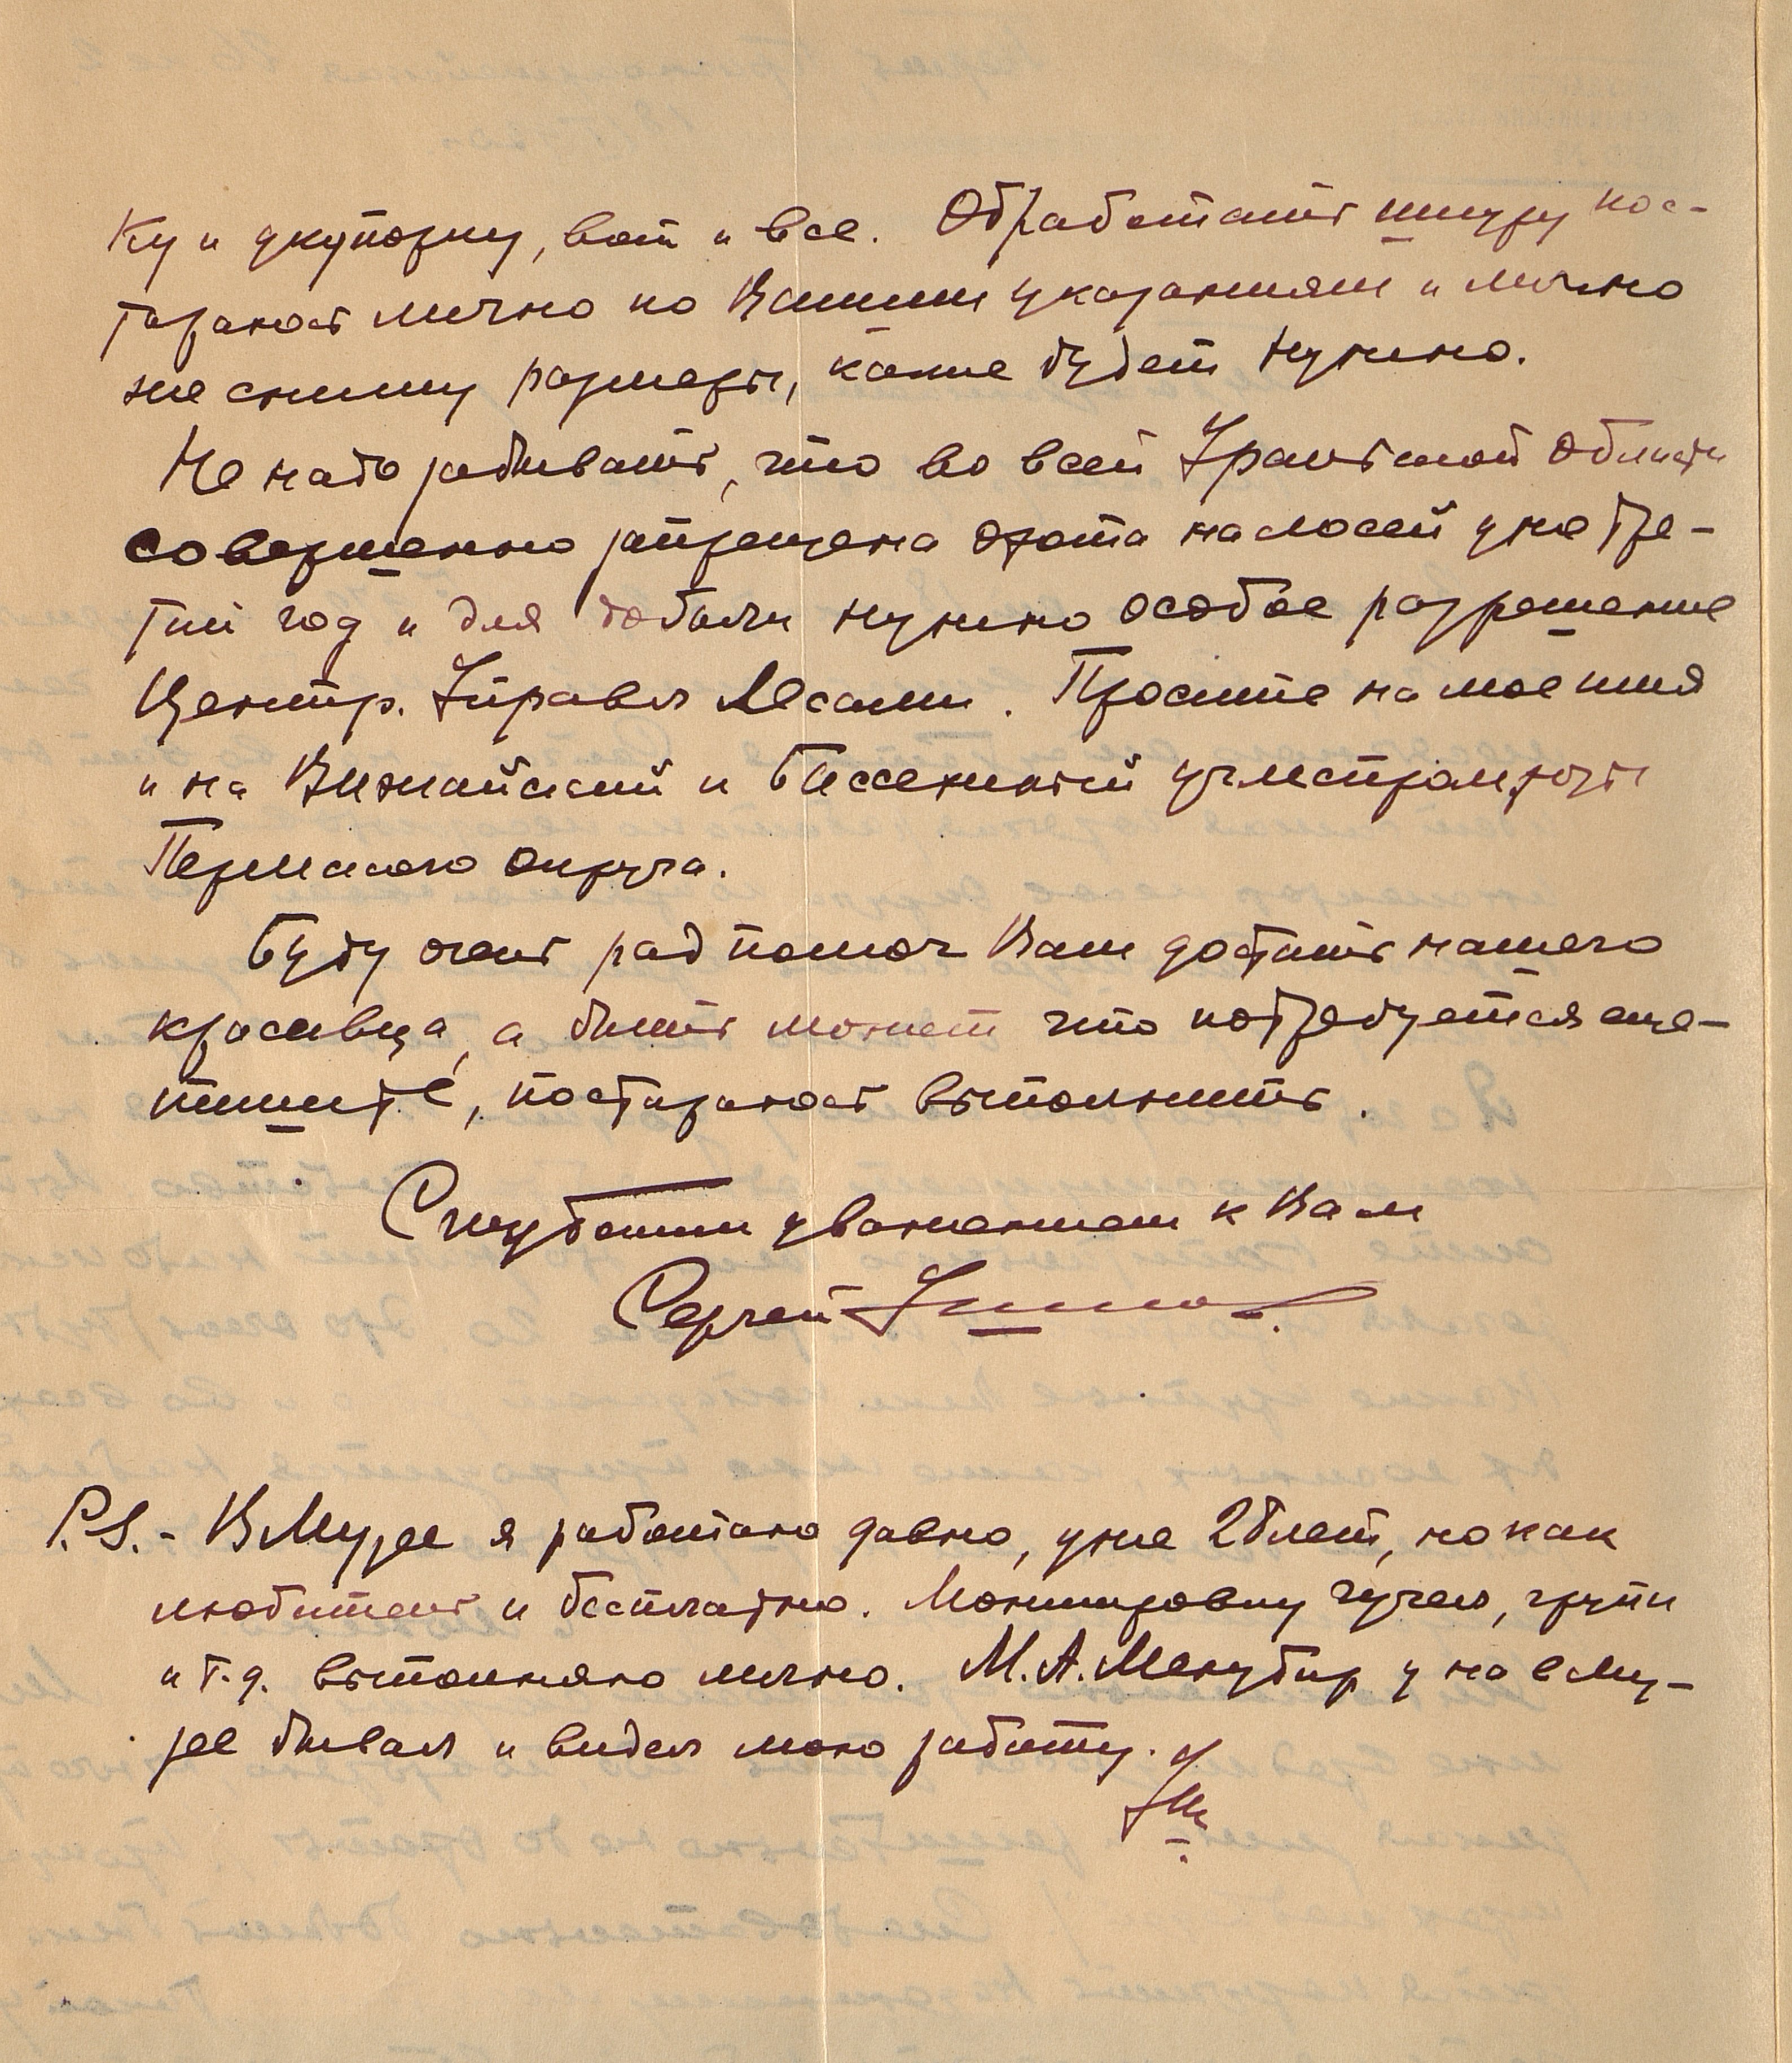 ку и укупорку, вот и все. Обработать шкуру пос-
тараюсь лично по Вашим указаниям и лично
же сниму размеры, какие будет нужно.
Не надо забывать, что во всей Уральской Области
совершенно запрещена охота на лосей уже тре-
тий год и для добычи нужно особое разрешение
Центр. Управл Лесами. Просите на мое имя
и на Вижайский и Бассейный
Пермского округа.
Буду очень рад помоч Вам достать нашего
красавца, а быть может что потребуется еще-
пишите, постараюсь выполнить.
С глубоким уважением к Вам
Сергей
P.S. - В Музее я работаю давно, уже 26 лет, но как
любитель и бесплатно. Монтировку чучел, групп
и т.д. выполняю лично. М.А. Мензбир у на в Му-
зее бывал и видел мою работу.